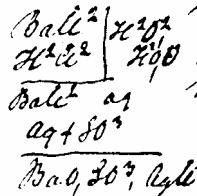 BaCl² | H²O²,
H²Cl² | H²,O
BaCl² aq
aq + SO³
BaO, SO³, aqCl